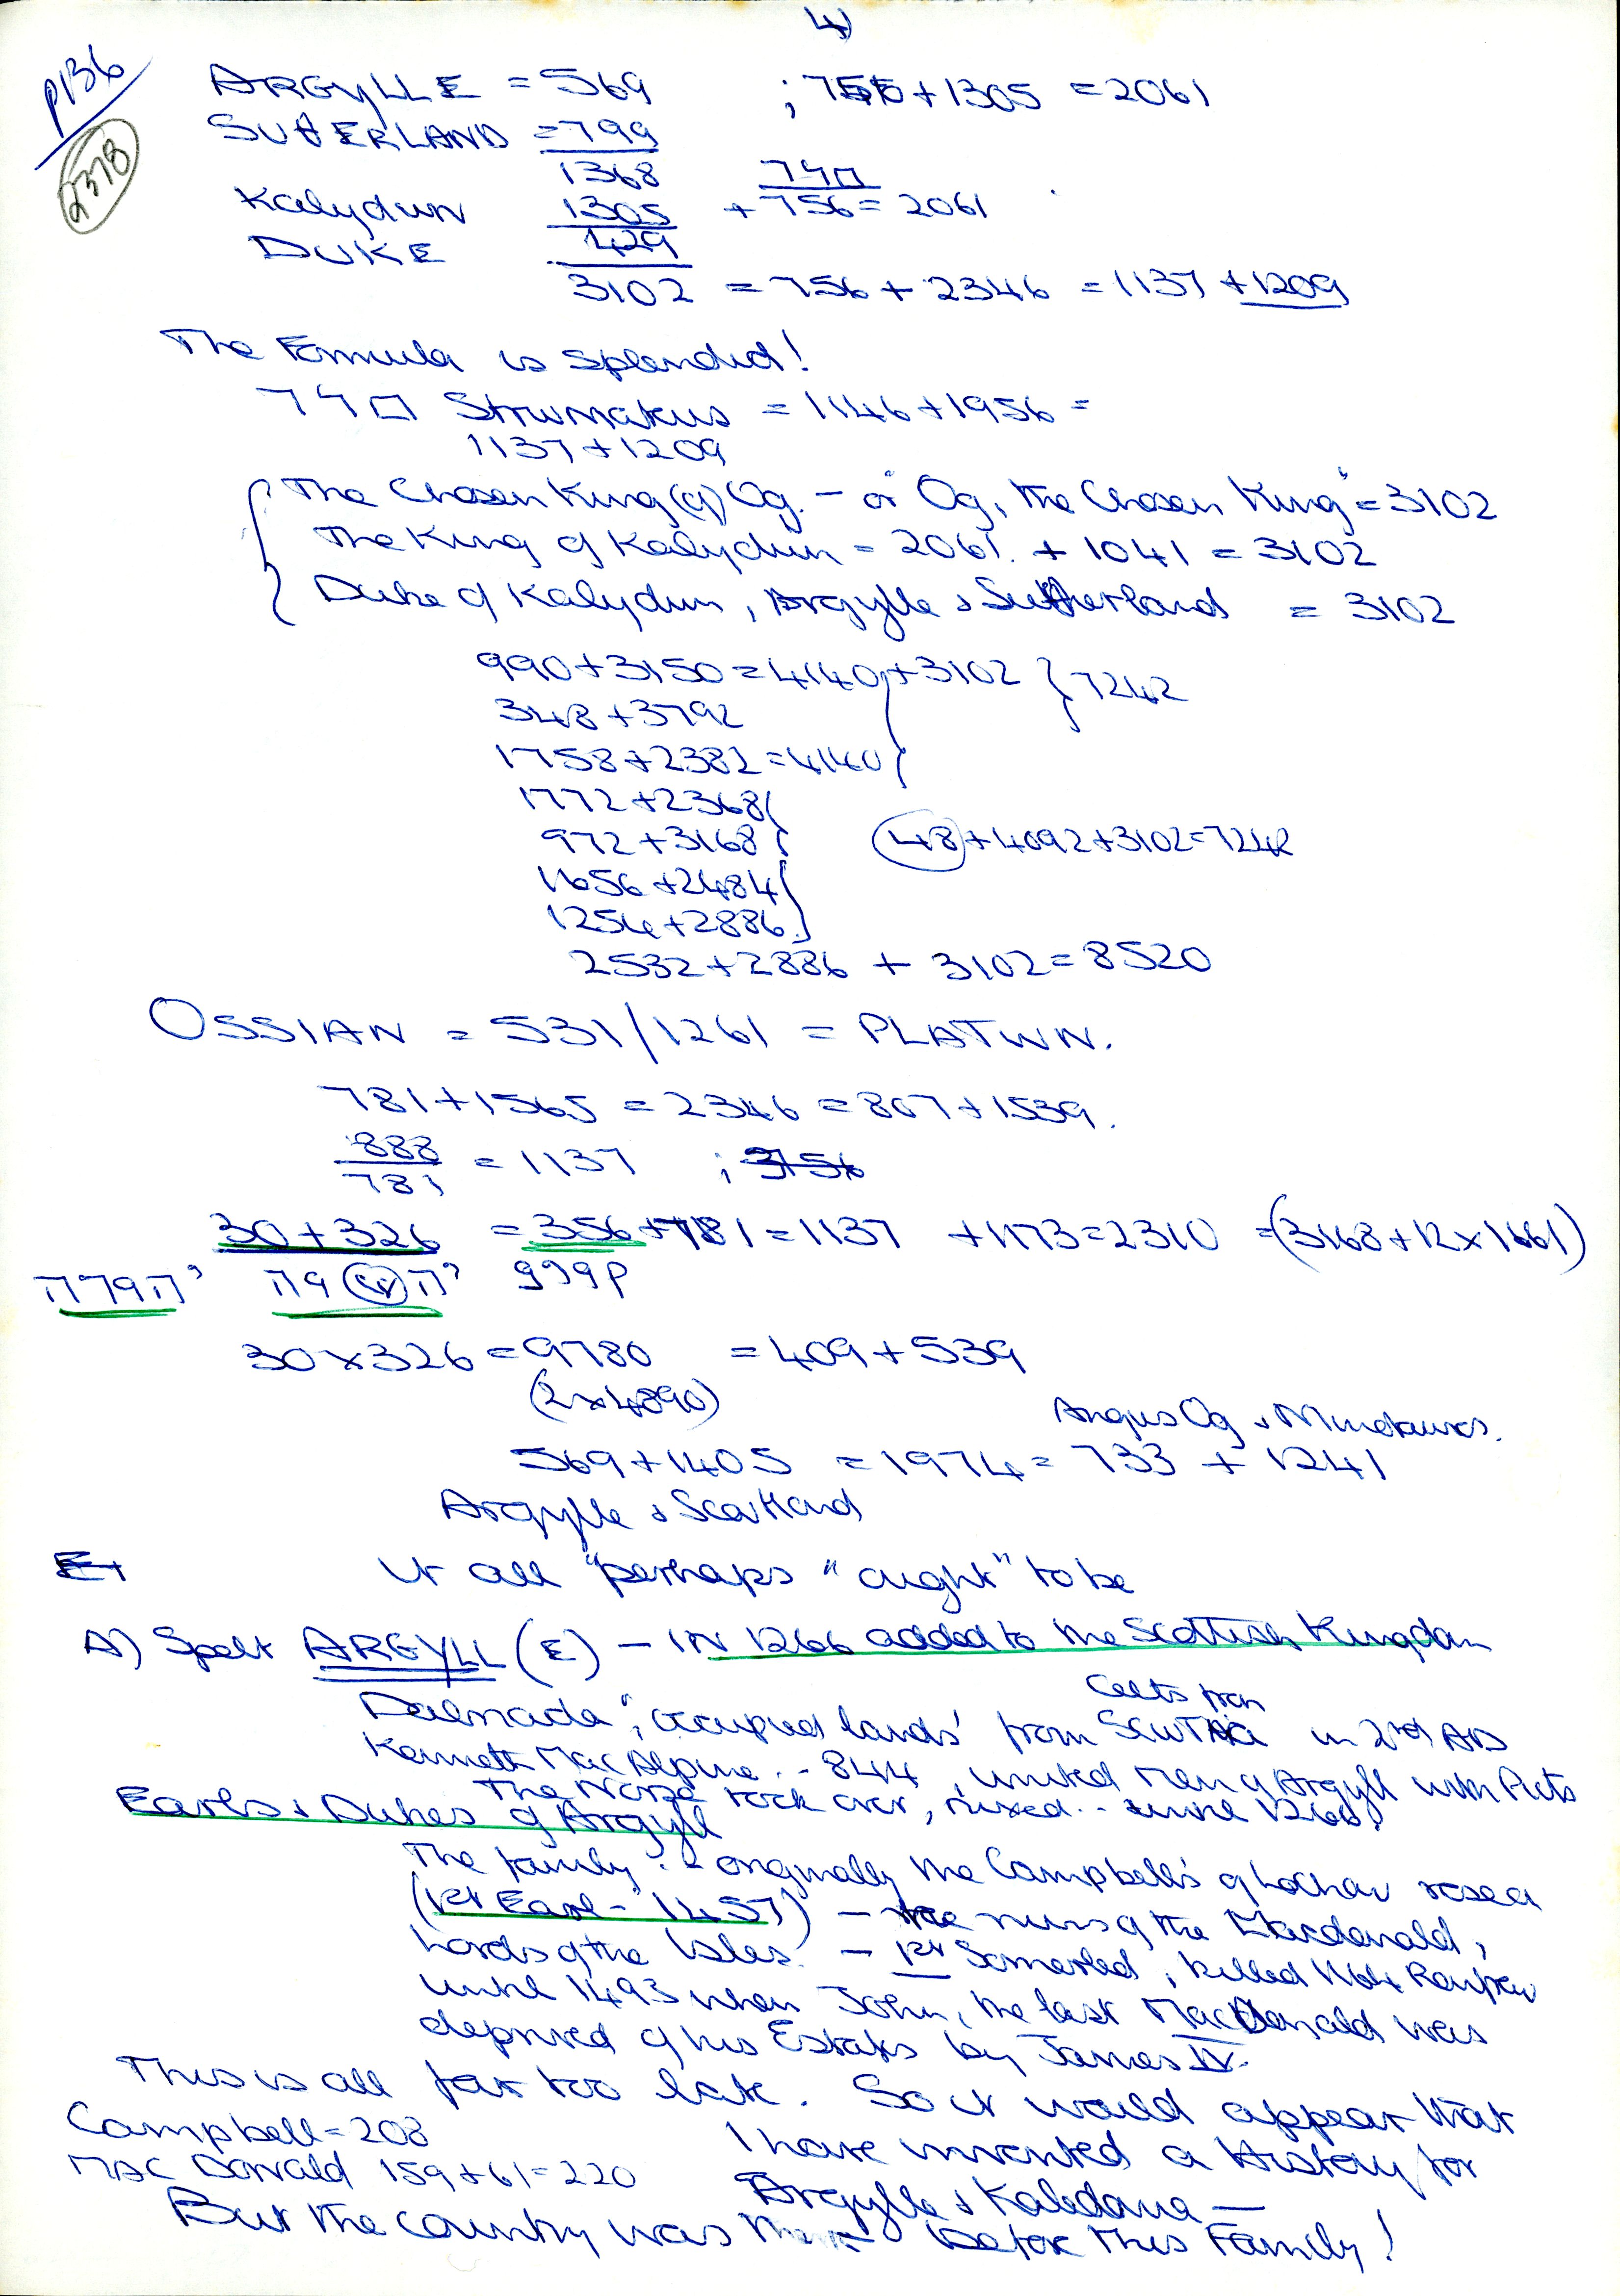 4)
p136
2378
ARGYLLE = 569 ; 756 + 1305 = 2061
SUTERLAND = 799
1368
Kalydwn 1305 + 756 = 2061
DUKE 429
3102 = 756 + 2346 = 1137 + 1209
The Formula is splendid!
Strwmatws = 1146 + 1956 =
1137 + 1209
The Chosen King (of) Og. – or "Og, the Chosen King" = 3102
The King of Kalydwn = 2061. + 1041 = 3102
Duke of Kalydwn, Argylle & Sutherland = 3102
990 + 3150 = 4140 + 3102 } 7242
348 + 3792
1758 + 2382 = 4140
1772 + 2368
972 + 3168 48 + 4092 + 3102 = 7242
1656 + 2484
1254 + 2886
2532 + 2886 + 3102 = 8520
OSSIAN = 531/1261 = PLATWN.
781 + 1565 = 2346 = 807 + 1539.
888
781 = 1137 ; 3156
30 + 326 = 356 + 781 = 1137 + 1173 = 2310 = (3168 + 12 x 1661)
30 x 326 = 9780 = 409 + 539
(2 x 4890)
Angus Og & Minotauros.
569 + 1405 = 1974 = 733 + 1241
Argylle & Scotland
It all "perhaps "ought" to be
A) Spelt ARGYLL (E) – IN 1266 added to the Scottish Kingdom
Celts from
Dalriada "; occupied lands' from in 2nd AD
Kenneth MacAlpine .. 844, united men of Argyll with Picts
The Norse took over, mixed .. until 1266.
Earls & Dukes of Argyll
The family :– originally the Campbell's of Lochaw rose a
(1st Earl – 1457) – the ruins of the Macdonald,
Lords of the Isles. – 1st Somerled, killed 1164 Renfrew
until 1493 when John, the last MacDonald was
deprived of his Estates by James IV.
This is all far too late. So it would appear that
Campbell = 208 I have invented a History for
MAC Donald 159 + 61 = 220 Argylle & Kaledona —
But the country was before this Family!